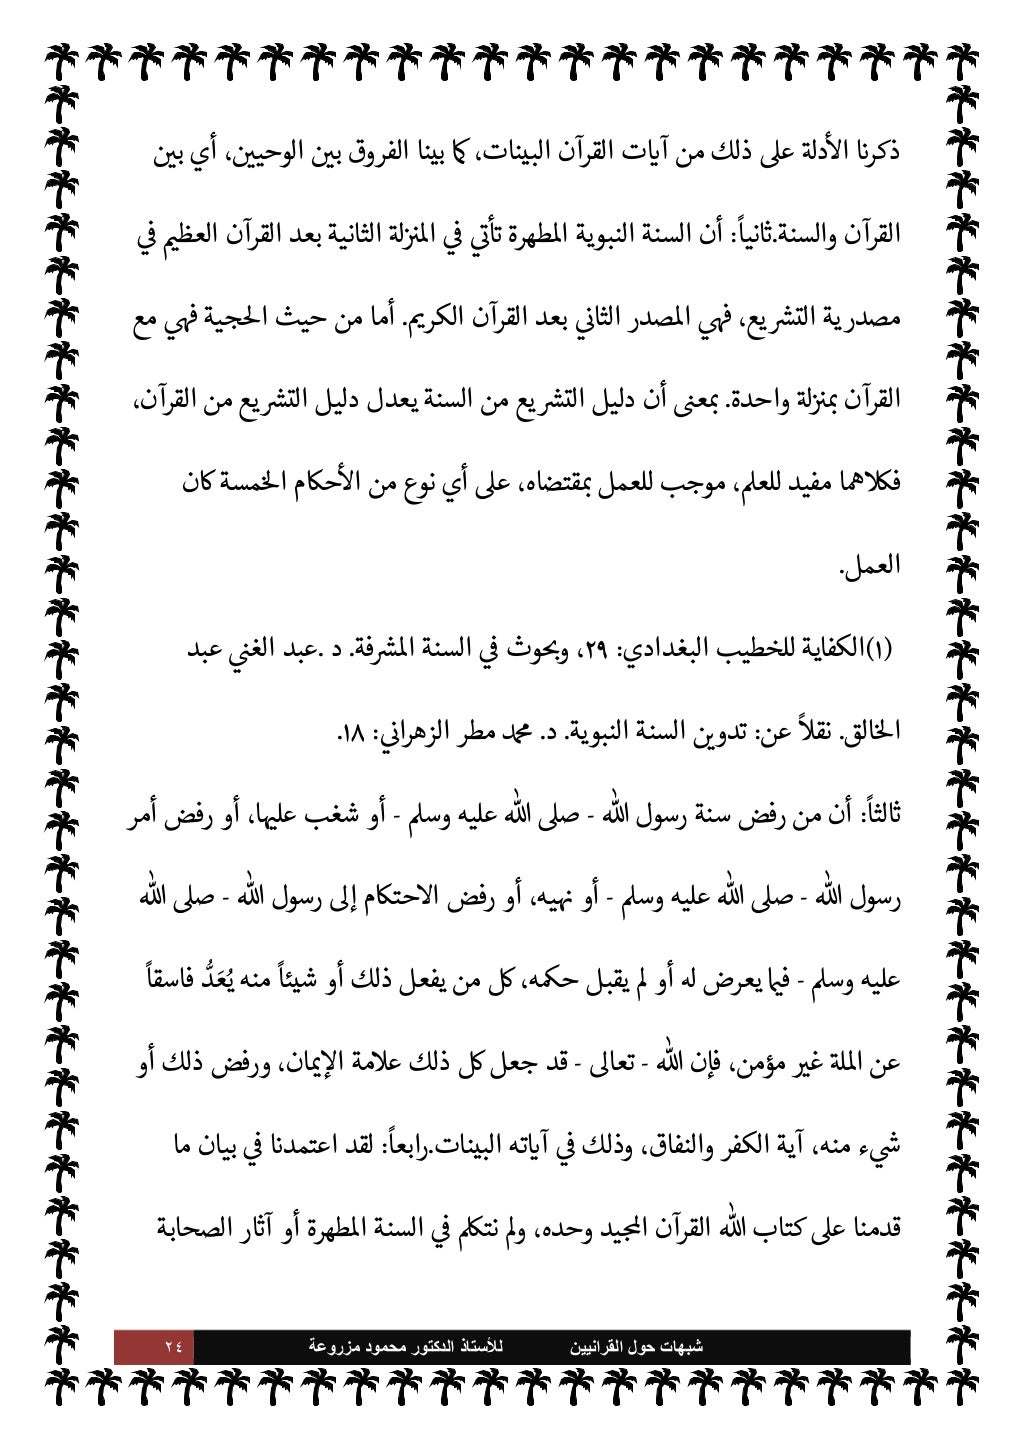 ذكرنا الأدلة على ذلك من آيات القرآن البينات، كما بينا الفروق بين الوحيين، أي بين
القرآن والسنة.ثانياً: أن السنة النبوية المطهرة تأتي في المنزلة الثانية بعد القرآن العظيم في
مصدرية التشريع، فهي المصدر الثاني بعد القرآن الكريم. أما من حيث الحجية فهي مع
القرآن بمنزلة واحدة. بمعنى أن دليل التشريع من السنة يعدل دليل التشريع من القرآن،
فكلاهما مفيد للعلم، موجب للعمل بمقتضاه، على أي نوع من الأحكام الخمسة كان
العمل.
(١)الكفاية للخطيب البغدادي: ٢٩، وبحوث في السنة المشرفة. د .عبد الغني عبد
الخالق. نقلاً عن: تدوين السنة النبوية. د. محمد مطر الزهراني: ١٨.
ثالثاً: أن من رفض سنة رسول الله - صلى الله عليه وسلم - أو شغب عليها، أو رفض أمر
رسول الله - صلى الله عليه وسلم - أو نهيه، أو رفض الاحتكام إلى رسول الله - صلى الله
عليه وسلم - فيما يعرض له أو لم يقبل حكمه، كل من يفعل ذلك أو شيئاً منه يُعَدُّ فاسقاً
عن الملة غير مؤمن، فإن الله - تعالى - قد جعل كل ذلك علامة الإيمان، ورفض ذلك أو
شيء منه، آية الكفر والنفاق، وذلك في آياته البينات.رابعاً: لقد اعتمدنا في بيان ما
قدمنا على كتاب الله القرآن المجيد وحده، ولم نتكلم في السنة المطهرة أو آثار الصحابة
شبهات حول القرانيين للأستاذ الدكتور محمود مزروعة ٢٤